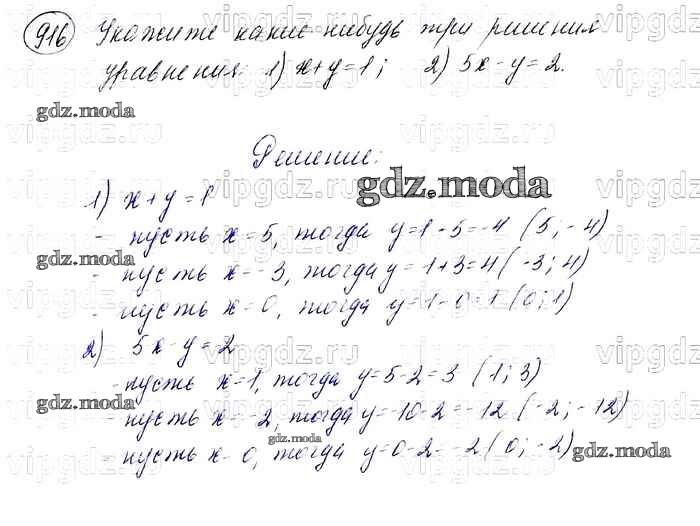 916 Укажите какие нибудь три решения
уравнения: 1) x+y=1; 2) 5x-y=2.
Решение:
1) x+y=1
- пусть x=5, тогда y=1-5=-4 (5;-4)
- пусть x=-3, тогда y=1+3=4 (-3;4)
- пусть x=0, тогда y=1-0=1 (0;1)
2) 5x-y=2
- пусть x=1, тогда y=5-2=3 (1;3)
- пусть x=-2, тогда y=-10-2=-12 (-2;-12)
- пусть x=0, тогда y=0-2=-2 (0;-2)
gdz.moda
gdz.moda
gdz.moda
gdz.moda
gdz.moda
gdz.moda
vipgdz.ru